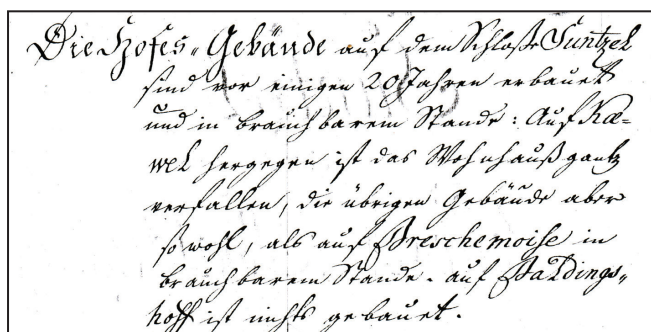 Die Hofes-Gebäude auf dem Schloße Suntzel
sind vor einigen 20 Jahren erbauet
und in brauchbarem Stande: Auf Kae-
wel hergegen ist das Wohnhauß gantz
verfallen, die übrigen Gebäude aber
so wohl, als auf Breschemoise in
brauchbarem Stande. auf Baldings-
hoff ist nichts gebauet.